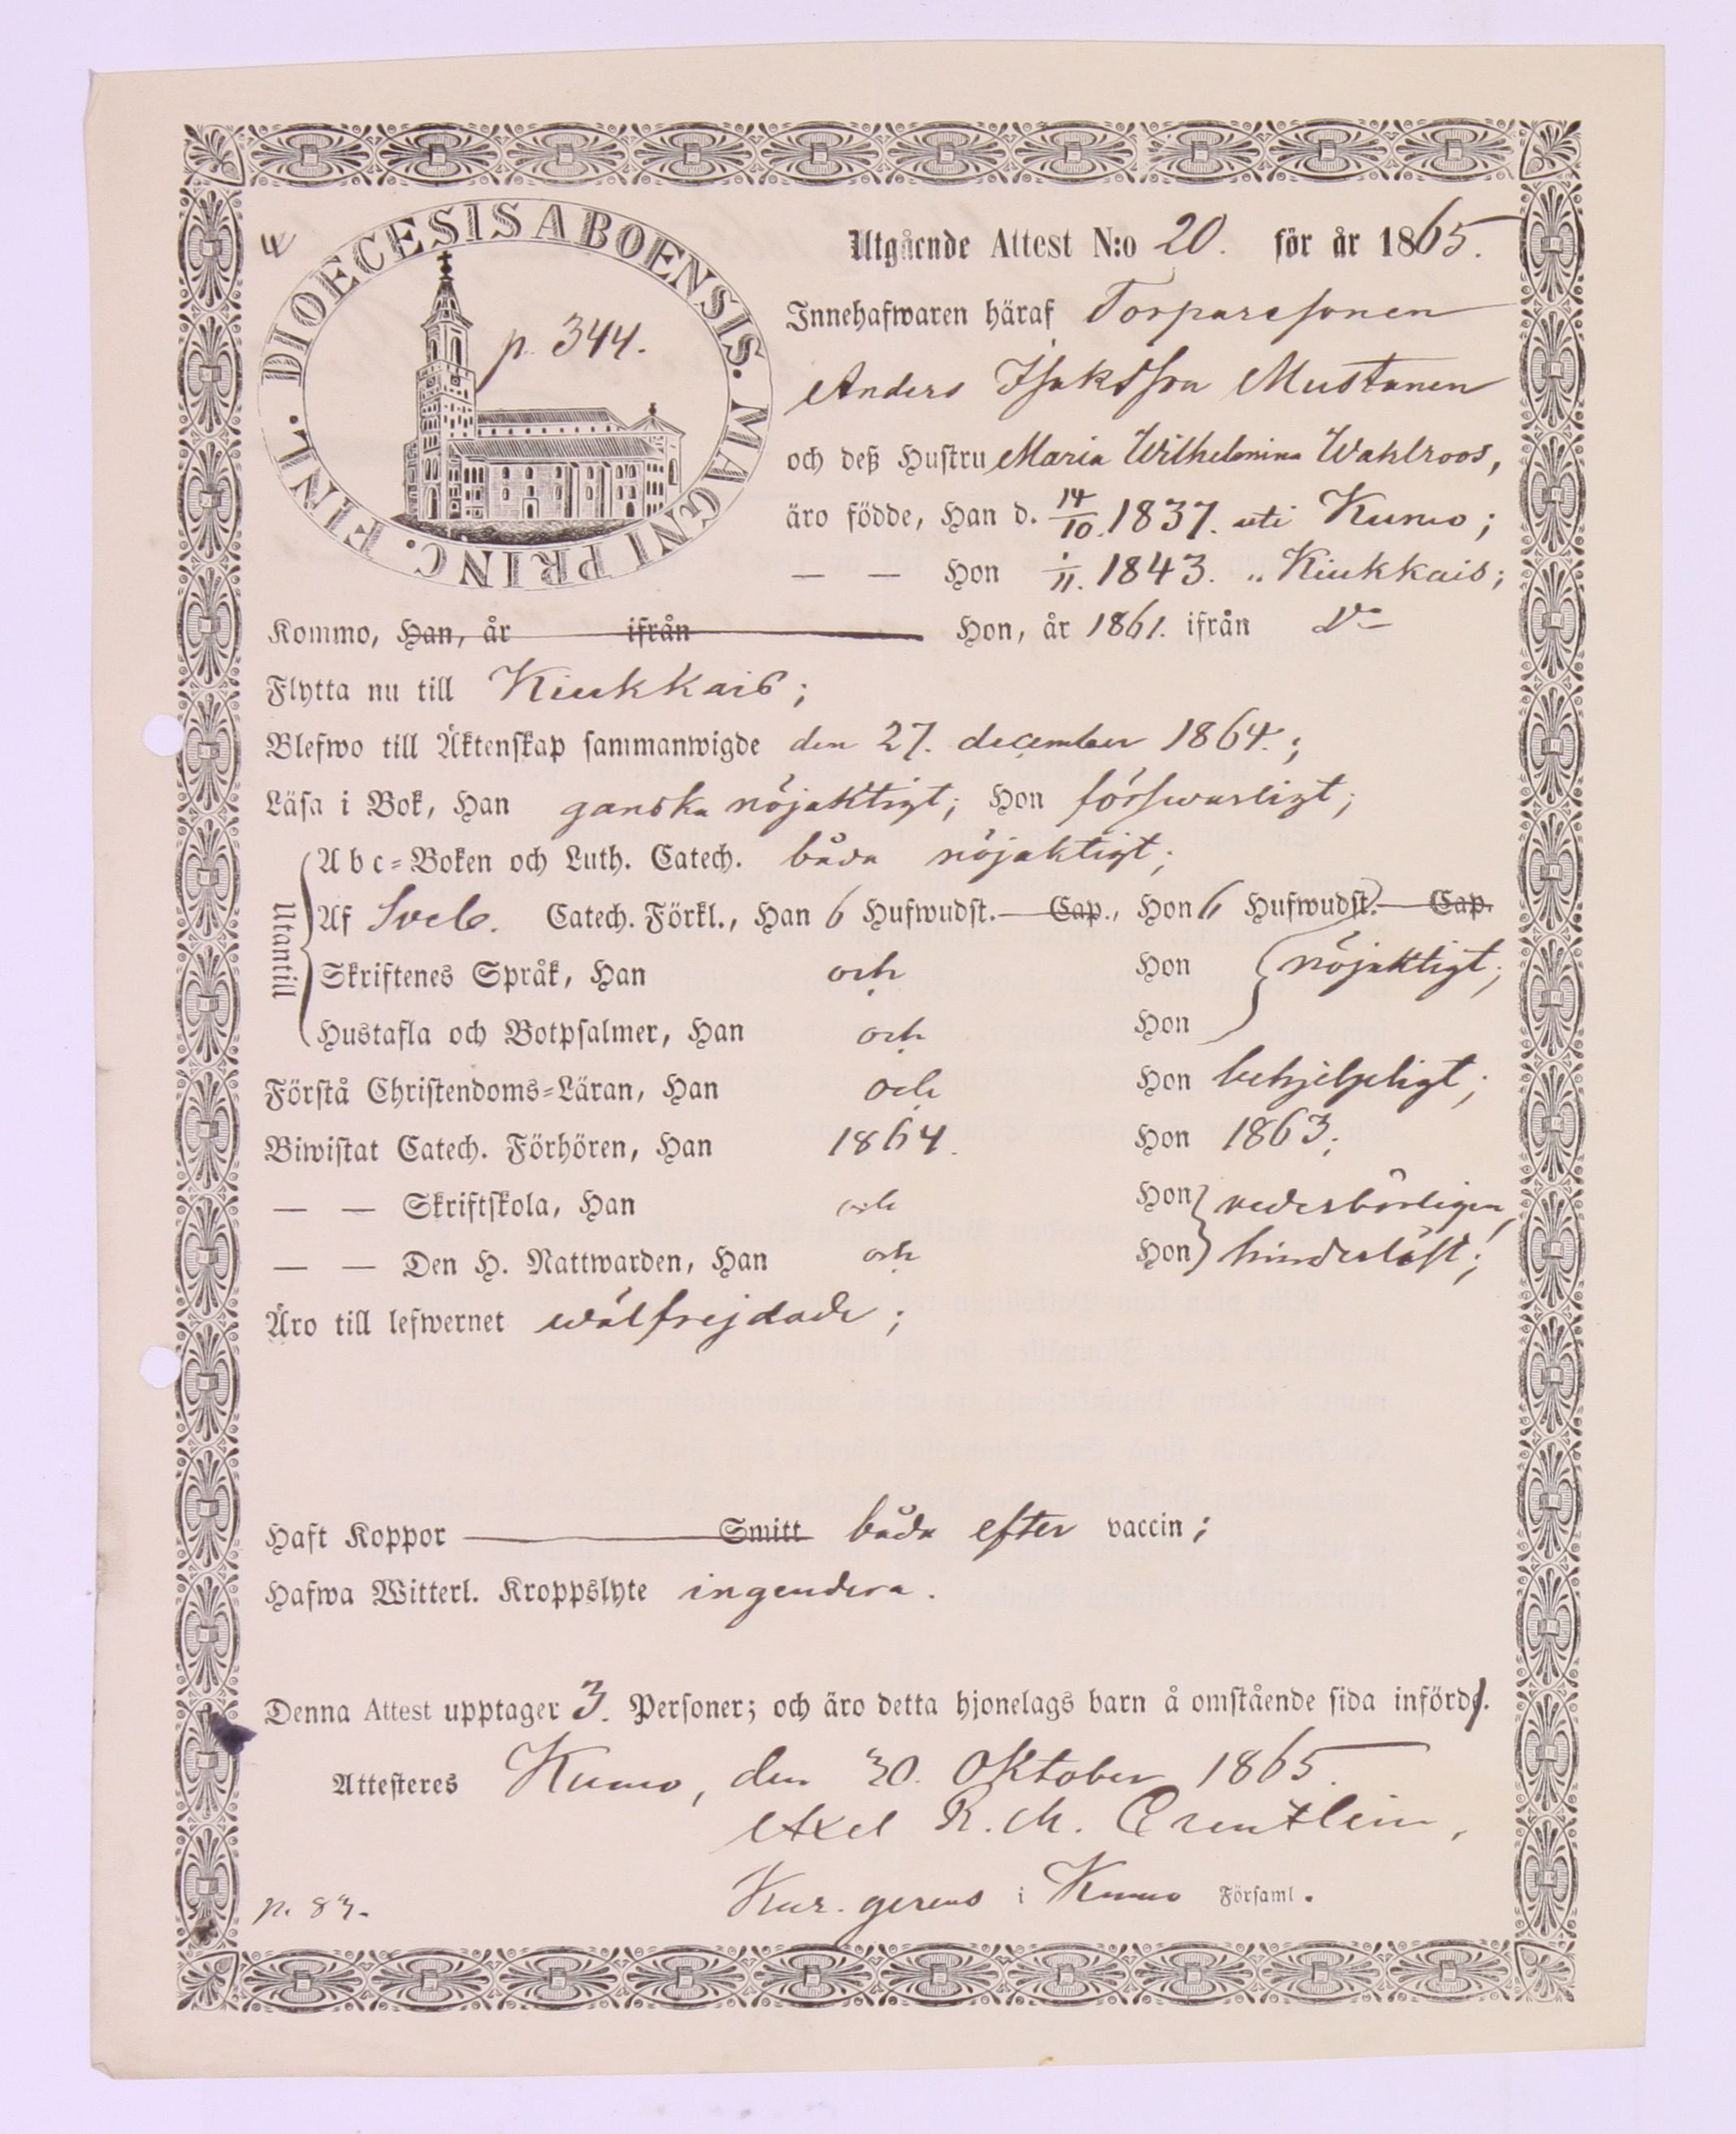 DIOECESIS ABOENSIS. MAGNI PRINC. FINL.
p. 344.
Utgående Attest N:o 20. för år 1865.
Innehafwaren häraf Torparesonen
Anders Isaksson Mustanen
och deß Hustru Maria Wilhelmina Wahlroos,
äro födde, Han d. 14/10. 1837. uti Kumo;
— — Hon 1/11. 1843. „ Kiukkais;
Kommo, Han, år ifrån Hon, år 1861. ifrån Do
Flytta nu till Kiukkais;
Blefwo till Äktenskap sammanwigde den 27. december 1864.;
Läsa i Bok, Han ganska nöjaktigt; Hon försvarligt;
Utantill
Abc-Boken och Luth. Catech. båda nöjaktigt;
Af Sveb. Catech. Förkl., Han 6 Hufwudst. Cap., Hon 6 Hufwudst. Cap.
Skriftenes Språk, Han och Hon nöjaktigt;
Hustafla och Botpsalmer, Han och Hon
Förstå Christendoms-Läran, Han och Hon behjelpeligt;
Biwistat Catech. Förhören, Han 1864. Hon 1863;
— — Skriftskola, Han och Hon vederbörligen,
— — Den H. Nattwarden, Han och Hon hinderlöst;
Äro till lefwernet wälfrejdade;
Haft Koppor Smitt båda efter vaccin;
Hafwa Witterl. Kroppslyte ingendera.
Denna Attest upptager 3. Personer; och äro detta hjonelags barn å omstående sida införde.
Attesteres Kumo, den 30. Oktober 1865.
Axel R. M.
gerens i Kumo Församl.